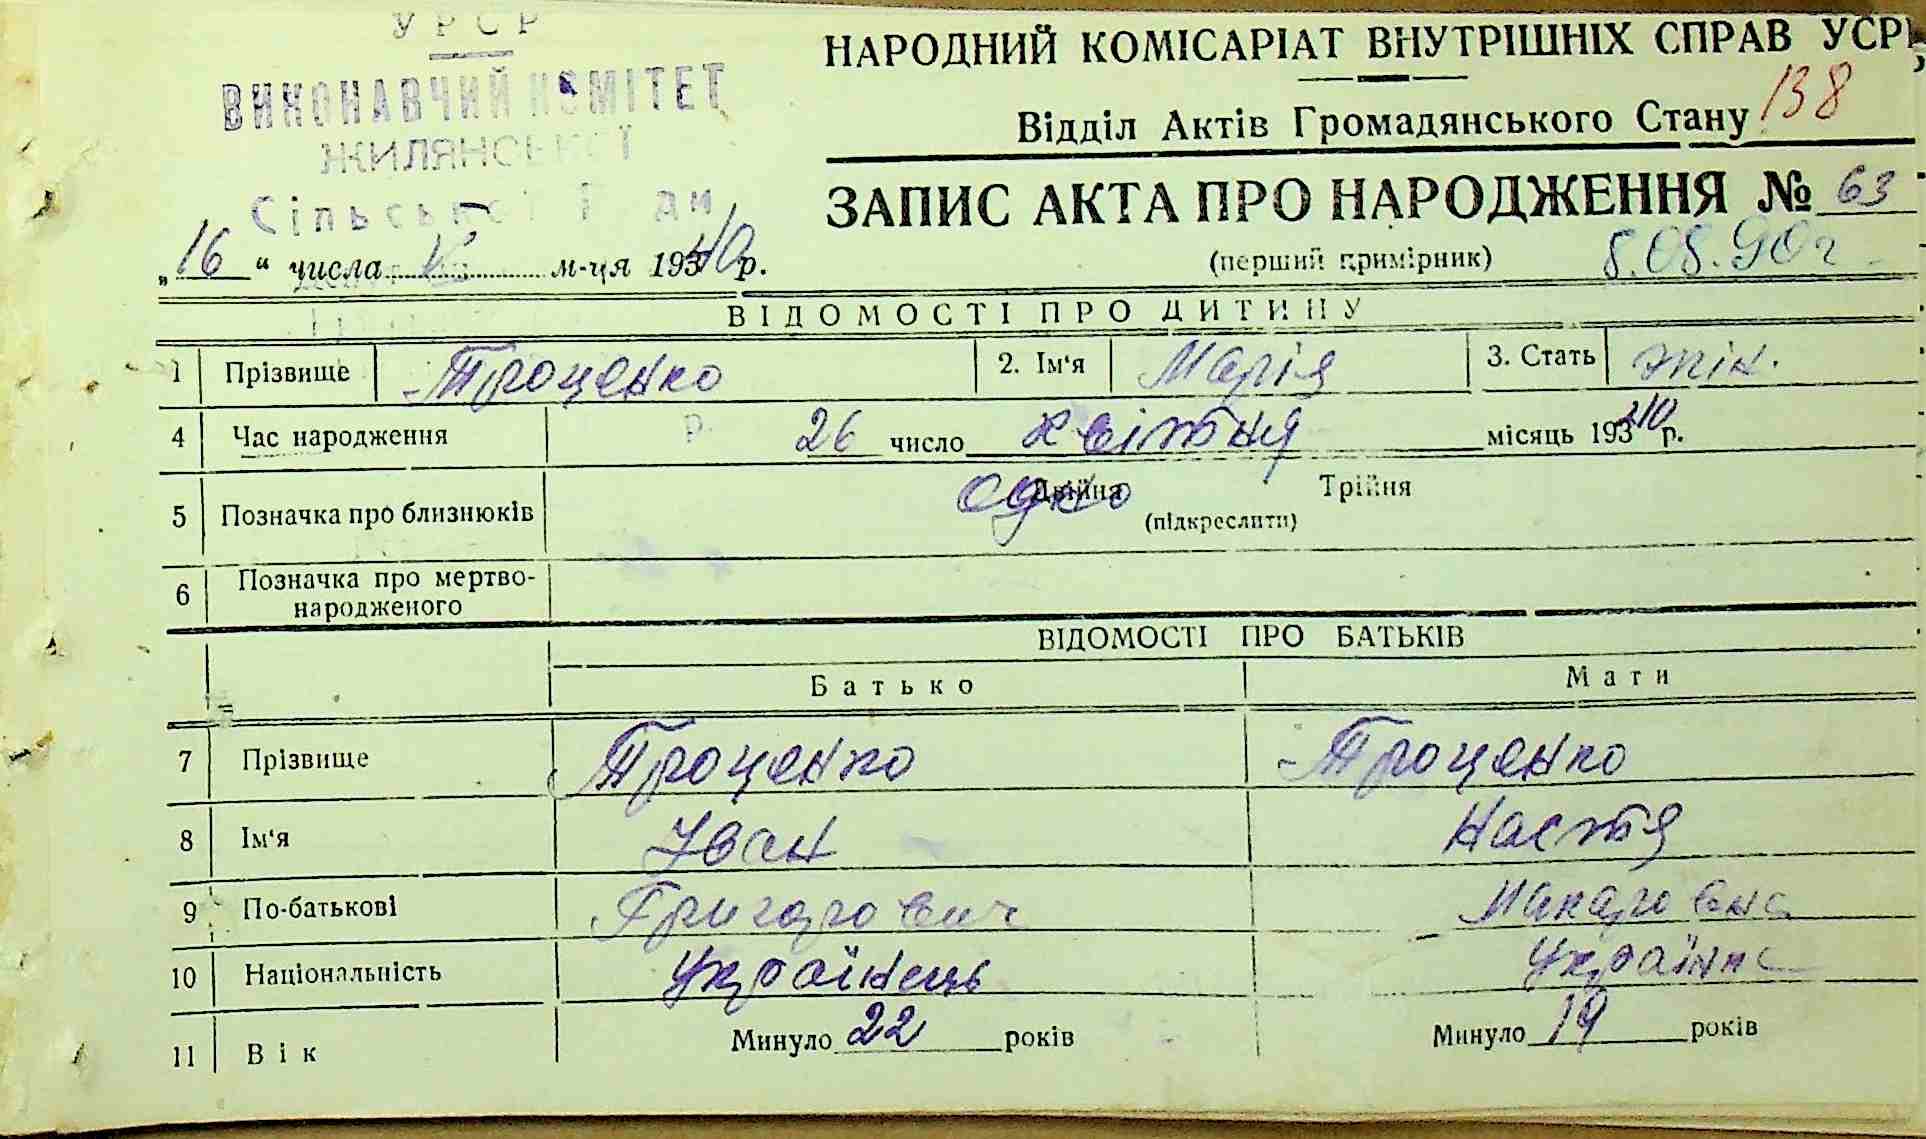 УРСР
ВИКОНАВЧИЙ КОМІТЕТ
ЖИЛЯНСЬКОЇ
Сільської
НАРОДНИЙ КОМІСАРІАТ ВНУТРІШНІХ СПРАВ УСРР
138
Відділ Актів Громадянського Стану
ЗАПИС АКТА ПРО НАРОДЖЕННЯ № 63
„16“ числа м-ця 1940 р.
(перший примірник) 8.08.90г
ВІДОМОСТІ ПРО ДИТИНУ
1 Прізвище Троценко 2. Ім'я Марія 3. Стать жін.
4 Час народження 26 число квітня місяць 19340 р.
5 Позначка про близнюків одно Двійня Трійня
(підкреслити)
6 Позначка про мертво-
народженого
ВІДОМОСТІ ПРО БАТЬКІВ
Батько Мати
7 Прізвище Троценко Троценко
8 Ім'я Іван Настя
9 По-батькові Григорович Макаровна
10 Національність Українець Українка
11 Вік Минуло 22 років Минуло 19 років